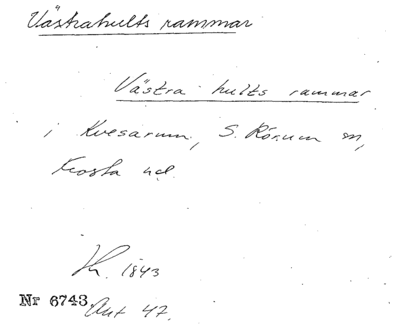 Västrahults rammar
Västra hults rammar
i Kvesarum, S. Rörum sn,
Frosta hd.
1843
Nr 6743 Akt 47.